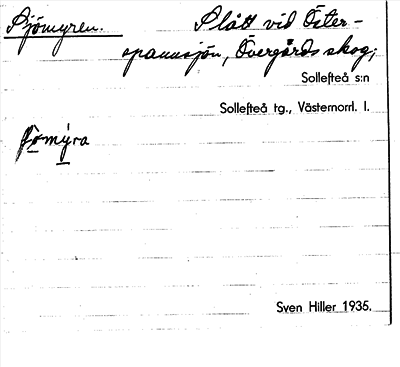 Sjömyren. Slått vid Öster-
spannsjön, Övergårds skog;
Sollefteå s:n
Sollefteå tg., Västernorrl. l.
ʃömýra
Sven Hiller 1935.